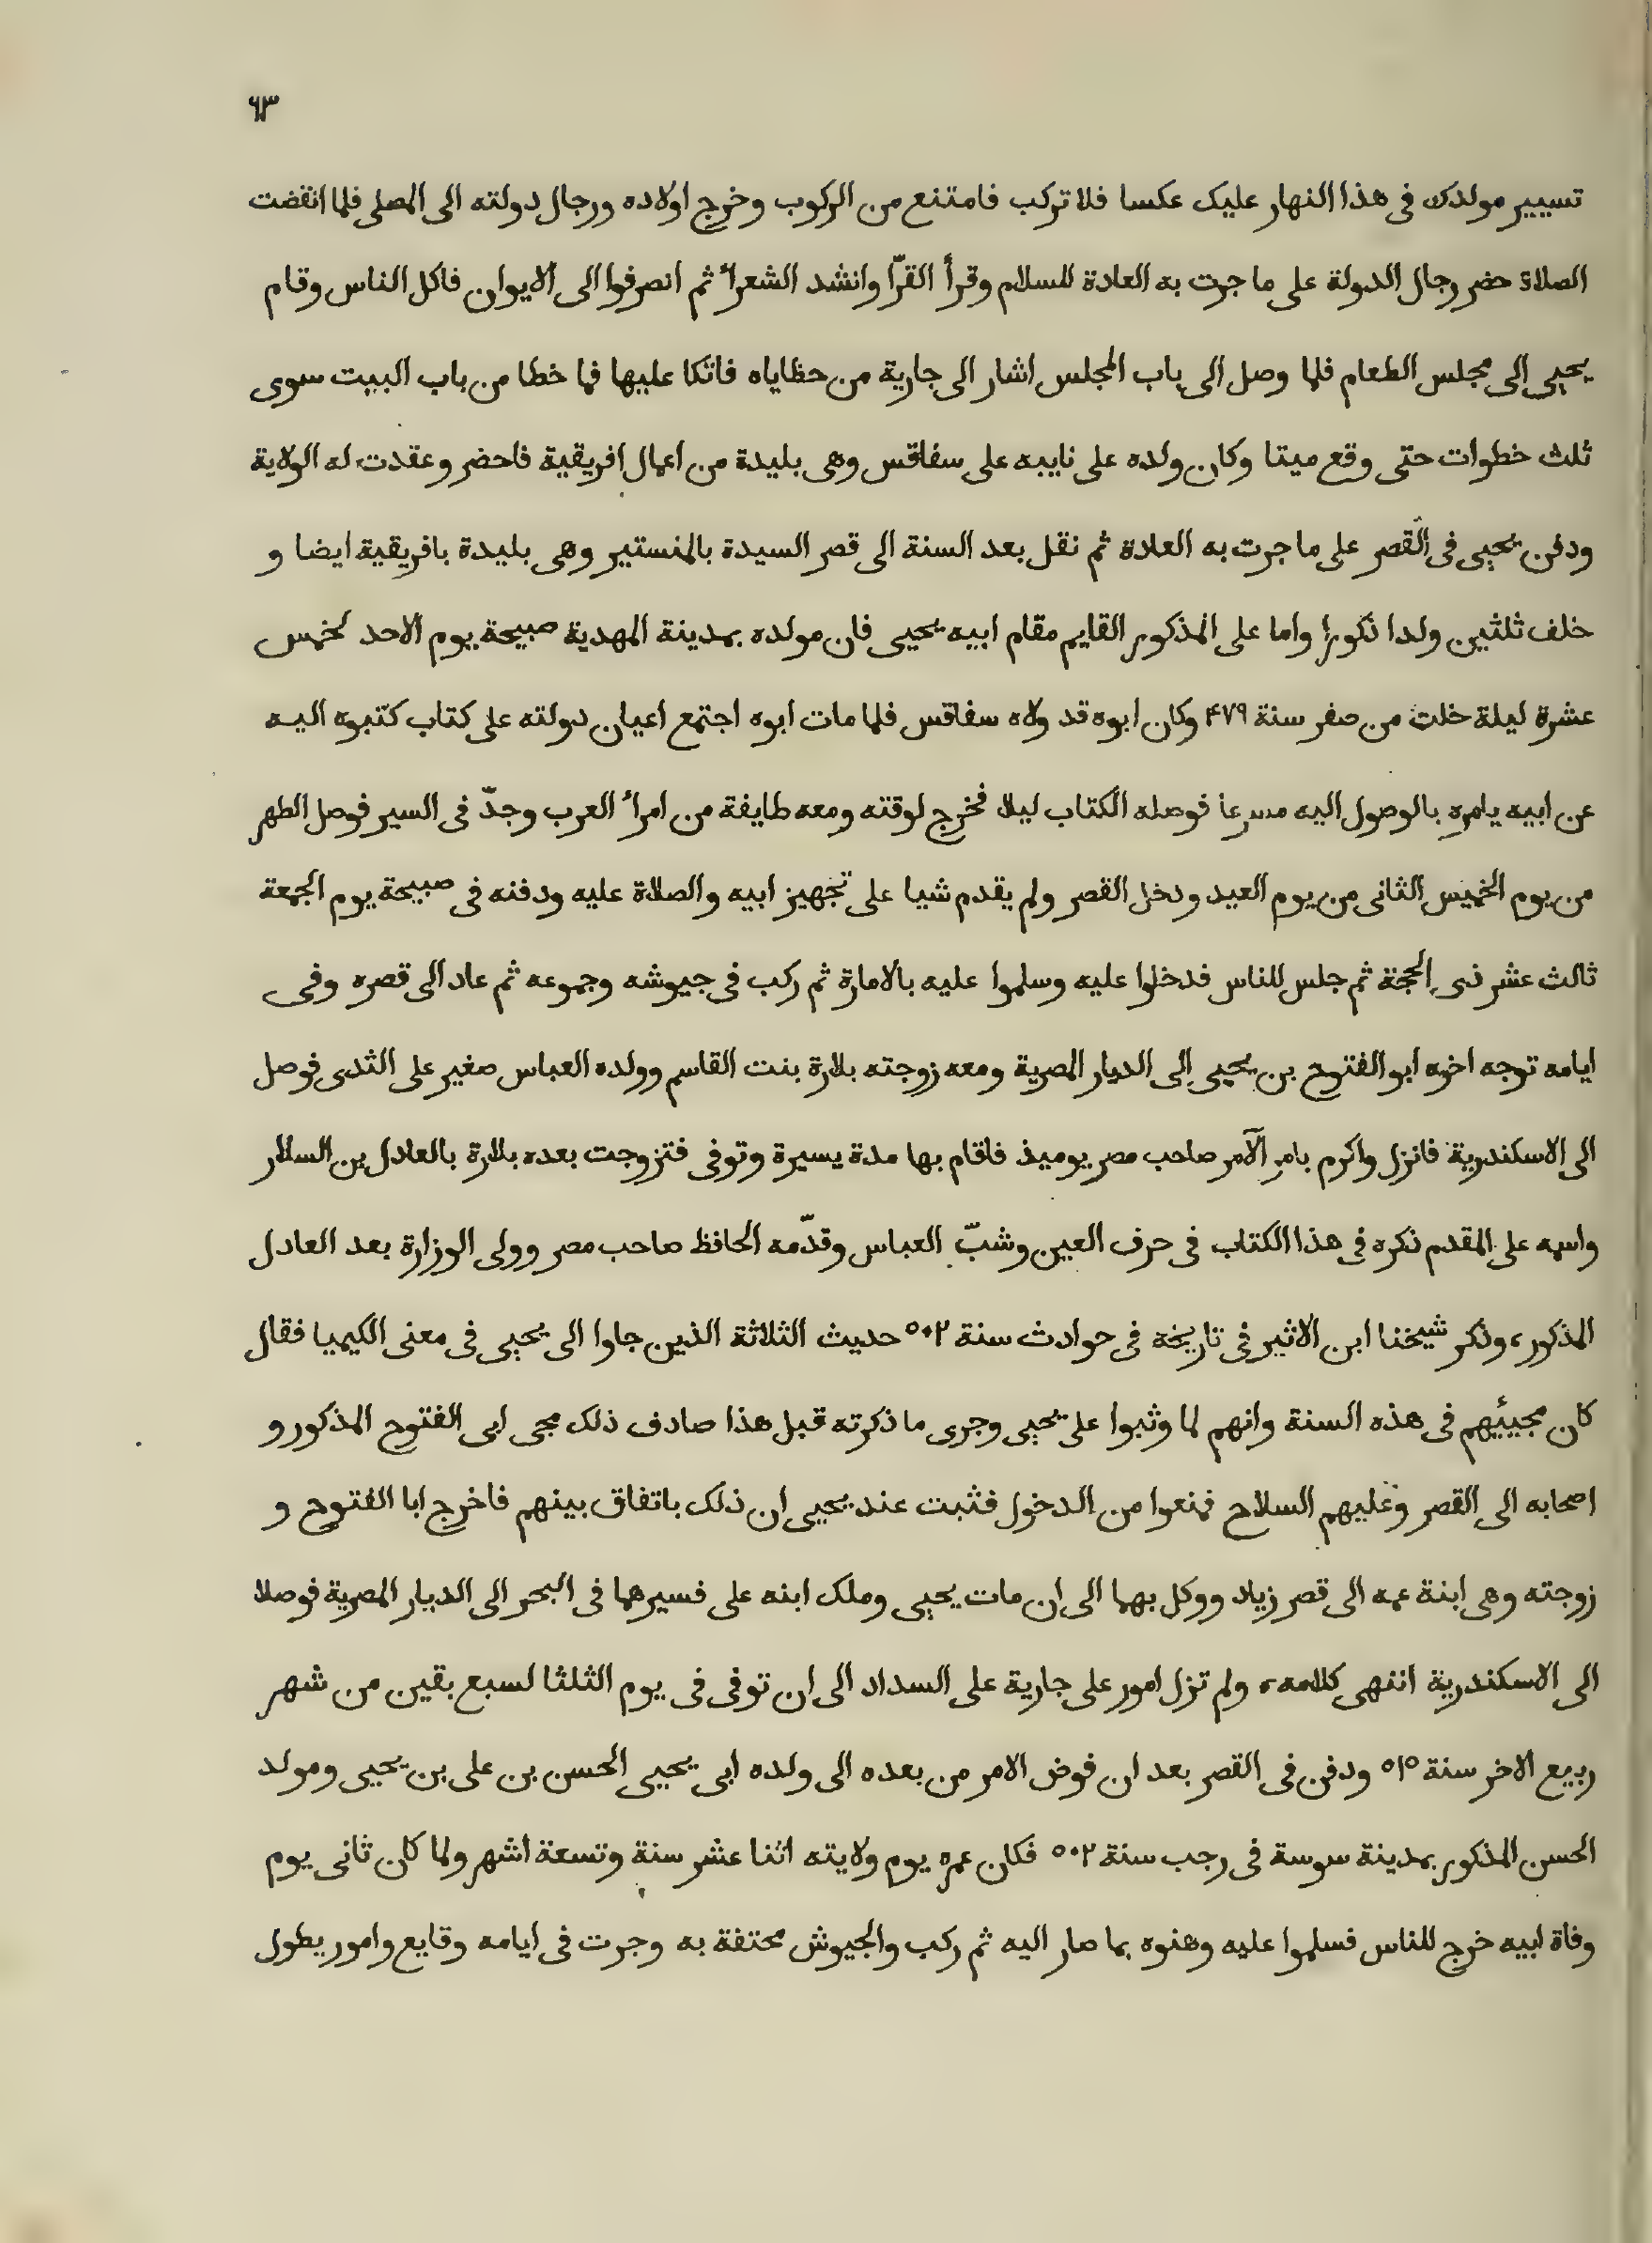 ٦٣
تسيير مولدك فى هذا النهار عليك عكسا فلا تركب فامتنع من الركوب وخرج اولاده ورجال دولته الى المصلى فلما انقضت
الصلاة حضر رجال الدولة على ما جرت به العادة للسلام وقرأ القرّا وانشد الشعرأ ثم انصرفوا الى الايوان فاكل الناس وقام
يحيى الى مجلس الطعام فلما وصل الى باب المجلس اشار الى جارية من حظاياه فاتكا عليها فما خطا من باب البيت سوى
ثلث خطوات حتى وقع ميتا وكان ولده على نايبه على سفاقس وهى بليدة من اعمال افريقية فاحضر وعقدت له الولاية
ودفن يحيى فى القصر على ما جرت به العادة ثم نقل بعد السنة الى قصر السيدة بالمنستير وهى بليدة بافريقية ايضا و
خلف ثلثين ولدا ذكورا واما على المذكور القايم مقام ابيه يحيى فان مولده بمدينة المهدية صبيحة يوم الاحد لخمس
عشرة ليلة خلت من صفر سنة ۴۷۹ وكان ابوه قد ولاه سفاقس فلما مات ابوه اجتمع اعيان دولته على كتاب كتبوه اليه
عن ابيه يامره بالوصول اليه مسرعا فوصله الكتاب ليلا فخرج لوقته ومعه طايفة من امرأ العرب وجدّ فى السير فوصل الظهر
من يوم الخميس الثانى من يوم العيد ودخل القصر ولم يقدم شيا على تجهيز ابيه والصلاة عليه ودفنه فى صبيحة يوم الجمعة
ثالث عشر ذى الحجة ثم جلس للناس فدخلوا عليه وسلموا عليه بالامارة ثم ركب فى جيوشه وجموعه ثم عاد الى قصره وفى
ايامه توجه اخوه ابو الفتوح بن يحيى الى الديار المصرية ومعه زوجته بلارة بنت القاسم وولده العباس صغير على الثدى فوصل
الى الاسكندرية فانزل واكرم بامر الآمر صاحب مصر يوميذ فاقام بها مدة يسيرة وتوفى فتزوجت بعده بلارة بالعادل بن السلار
واسمه على المقدم ذكره فى هذا الكتاب فى حرف العين وشبّ العباس وقدّمه الحافظ صاحب مصر وولى الوزارة بعد العادل
المذكور، وذكر شيخنا ابن الاثير فى تاريخه فى حوادث سنة ٥٠٢ حديث الثلاثة الذين جاوا الى يحيى فى معنى الكيميا فقال
كان مجييئهم فى هذه السنة وانهم لما وثبوا على يحيى وجرى ما ذكرته قبل هذا صادف ذلك مجى ابى الفتوح المذكور و
اصحابه الى القصر وعليهم السلاح فمنعوا من الدخول فثبت عند يحيى ان ذلك باتفاق بينهم فاخرج ابا الفتوح و
زوجته وهى ابنة عمه الى قصر زياد ووكل بهما الى ان مات يحيى وملك ابنه على فسيرهما فى البحر الى الديار المصرية فوصلا
الى الاسكندرية انتهى كلامه، ولم تزل امور على جارية على السداد الى ان توفى فى يوم الثلثا لسبع بقين من شهر
ربيع الاخر سنة ٥١٥ ودفن فى القصر بعد ان فوض الامر من بعده الى ولده ابى يحيى الحسن بن على بن يحيى ومولد
الحسن المذكور بمدينة سوسة فى رجب سنة ٥٠٢ فكان عمره يوم ولايته اثنا عشر سنة وتسعة اشهر ولما كان ثانى يوم
وفاة ابيه خرج للناس فسلموا عليه وهنوه بما صار اليه ثم ركب والجيوش محتفة به وجرت فى ايامه وقايع وامور يطول